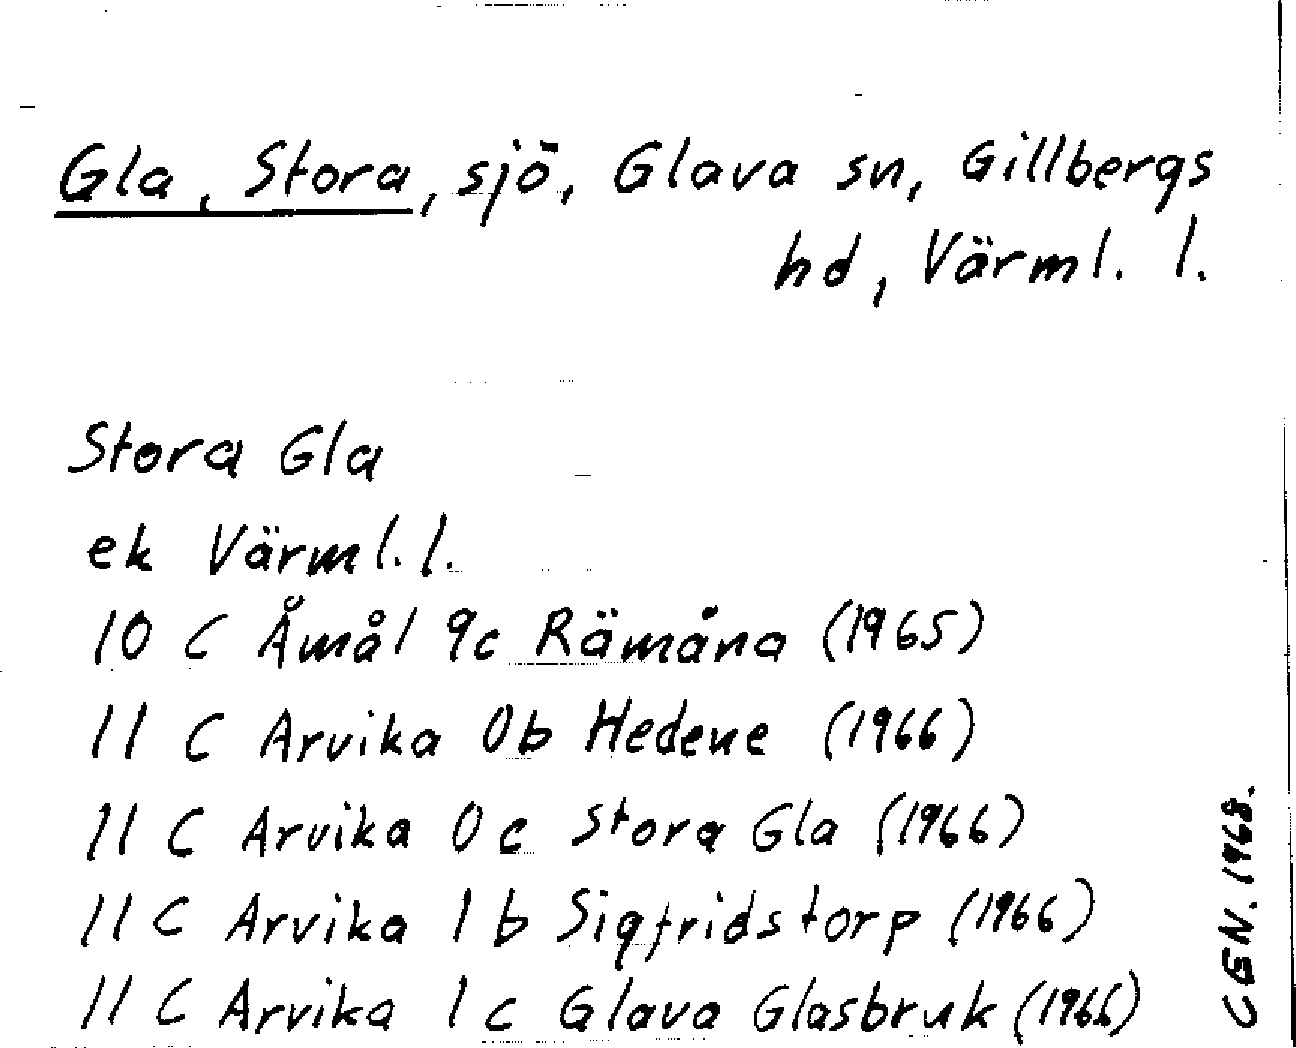 Gla, Stora, sjö, Glava sn, Gillbergs
hd, Värml. l.
Stora Gla
ek Värml. l.
10 C Åmål 9c Rämåna (1965)
11 C Arvika 0b Hedene (1966)
11 C Arvika 0c Stora Gla (1966)
11 C Arvika 1b Sigfridstorp (1966)
11 C Arvika 1c Glava Glasbruk (1966)
CGN. 1968.